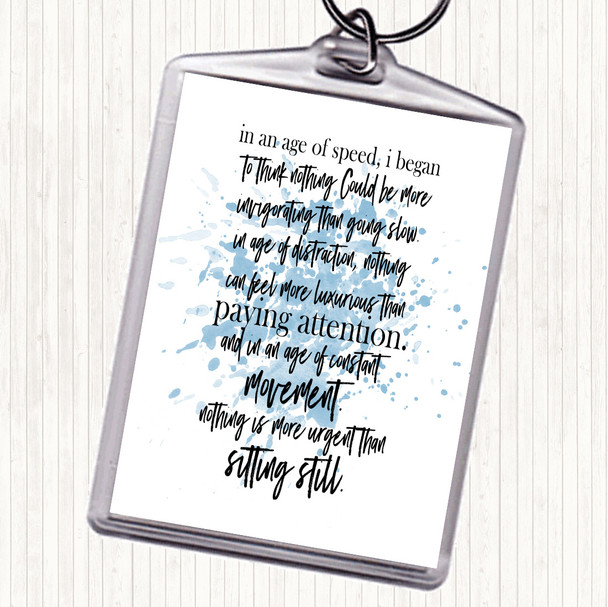 in an age of speed, i began
To think nothing Could be more
invigorating than going slow.
in age of distraction, nothing
can feel more luxurious than
paying attention.
and in an age of constant
movement.
nothing is more urgent than
sitting still.